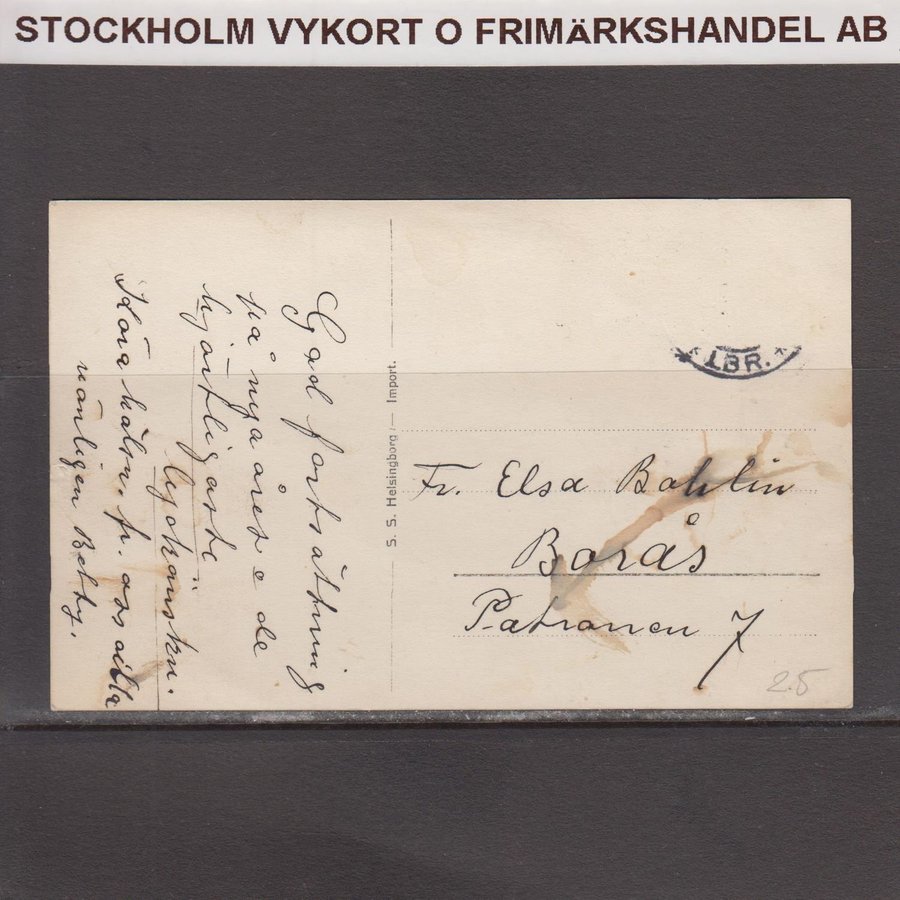 STOCKHOLM VYKORT O FRIMÄRKSHANDEL AB
God fortsättning
på nya året o de
hjärtligaste
lyckönskn.
Kära hälsn. fr. oss alla
vänligen Betty.
S. S. Helsingborg — Import.
LBR.
Fr. Elsa Bohlin
Borås
Patronen 7
25